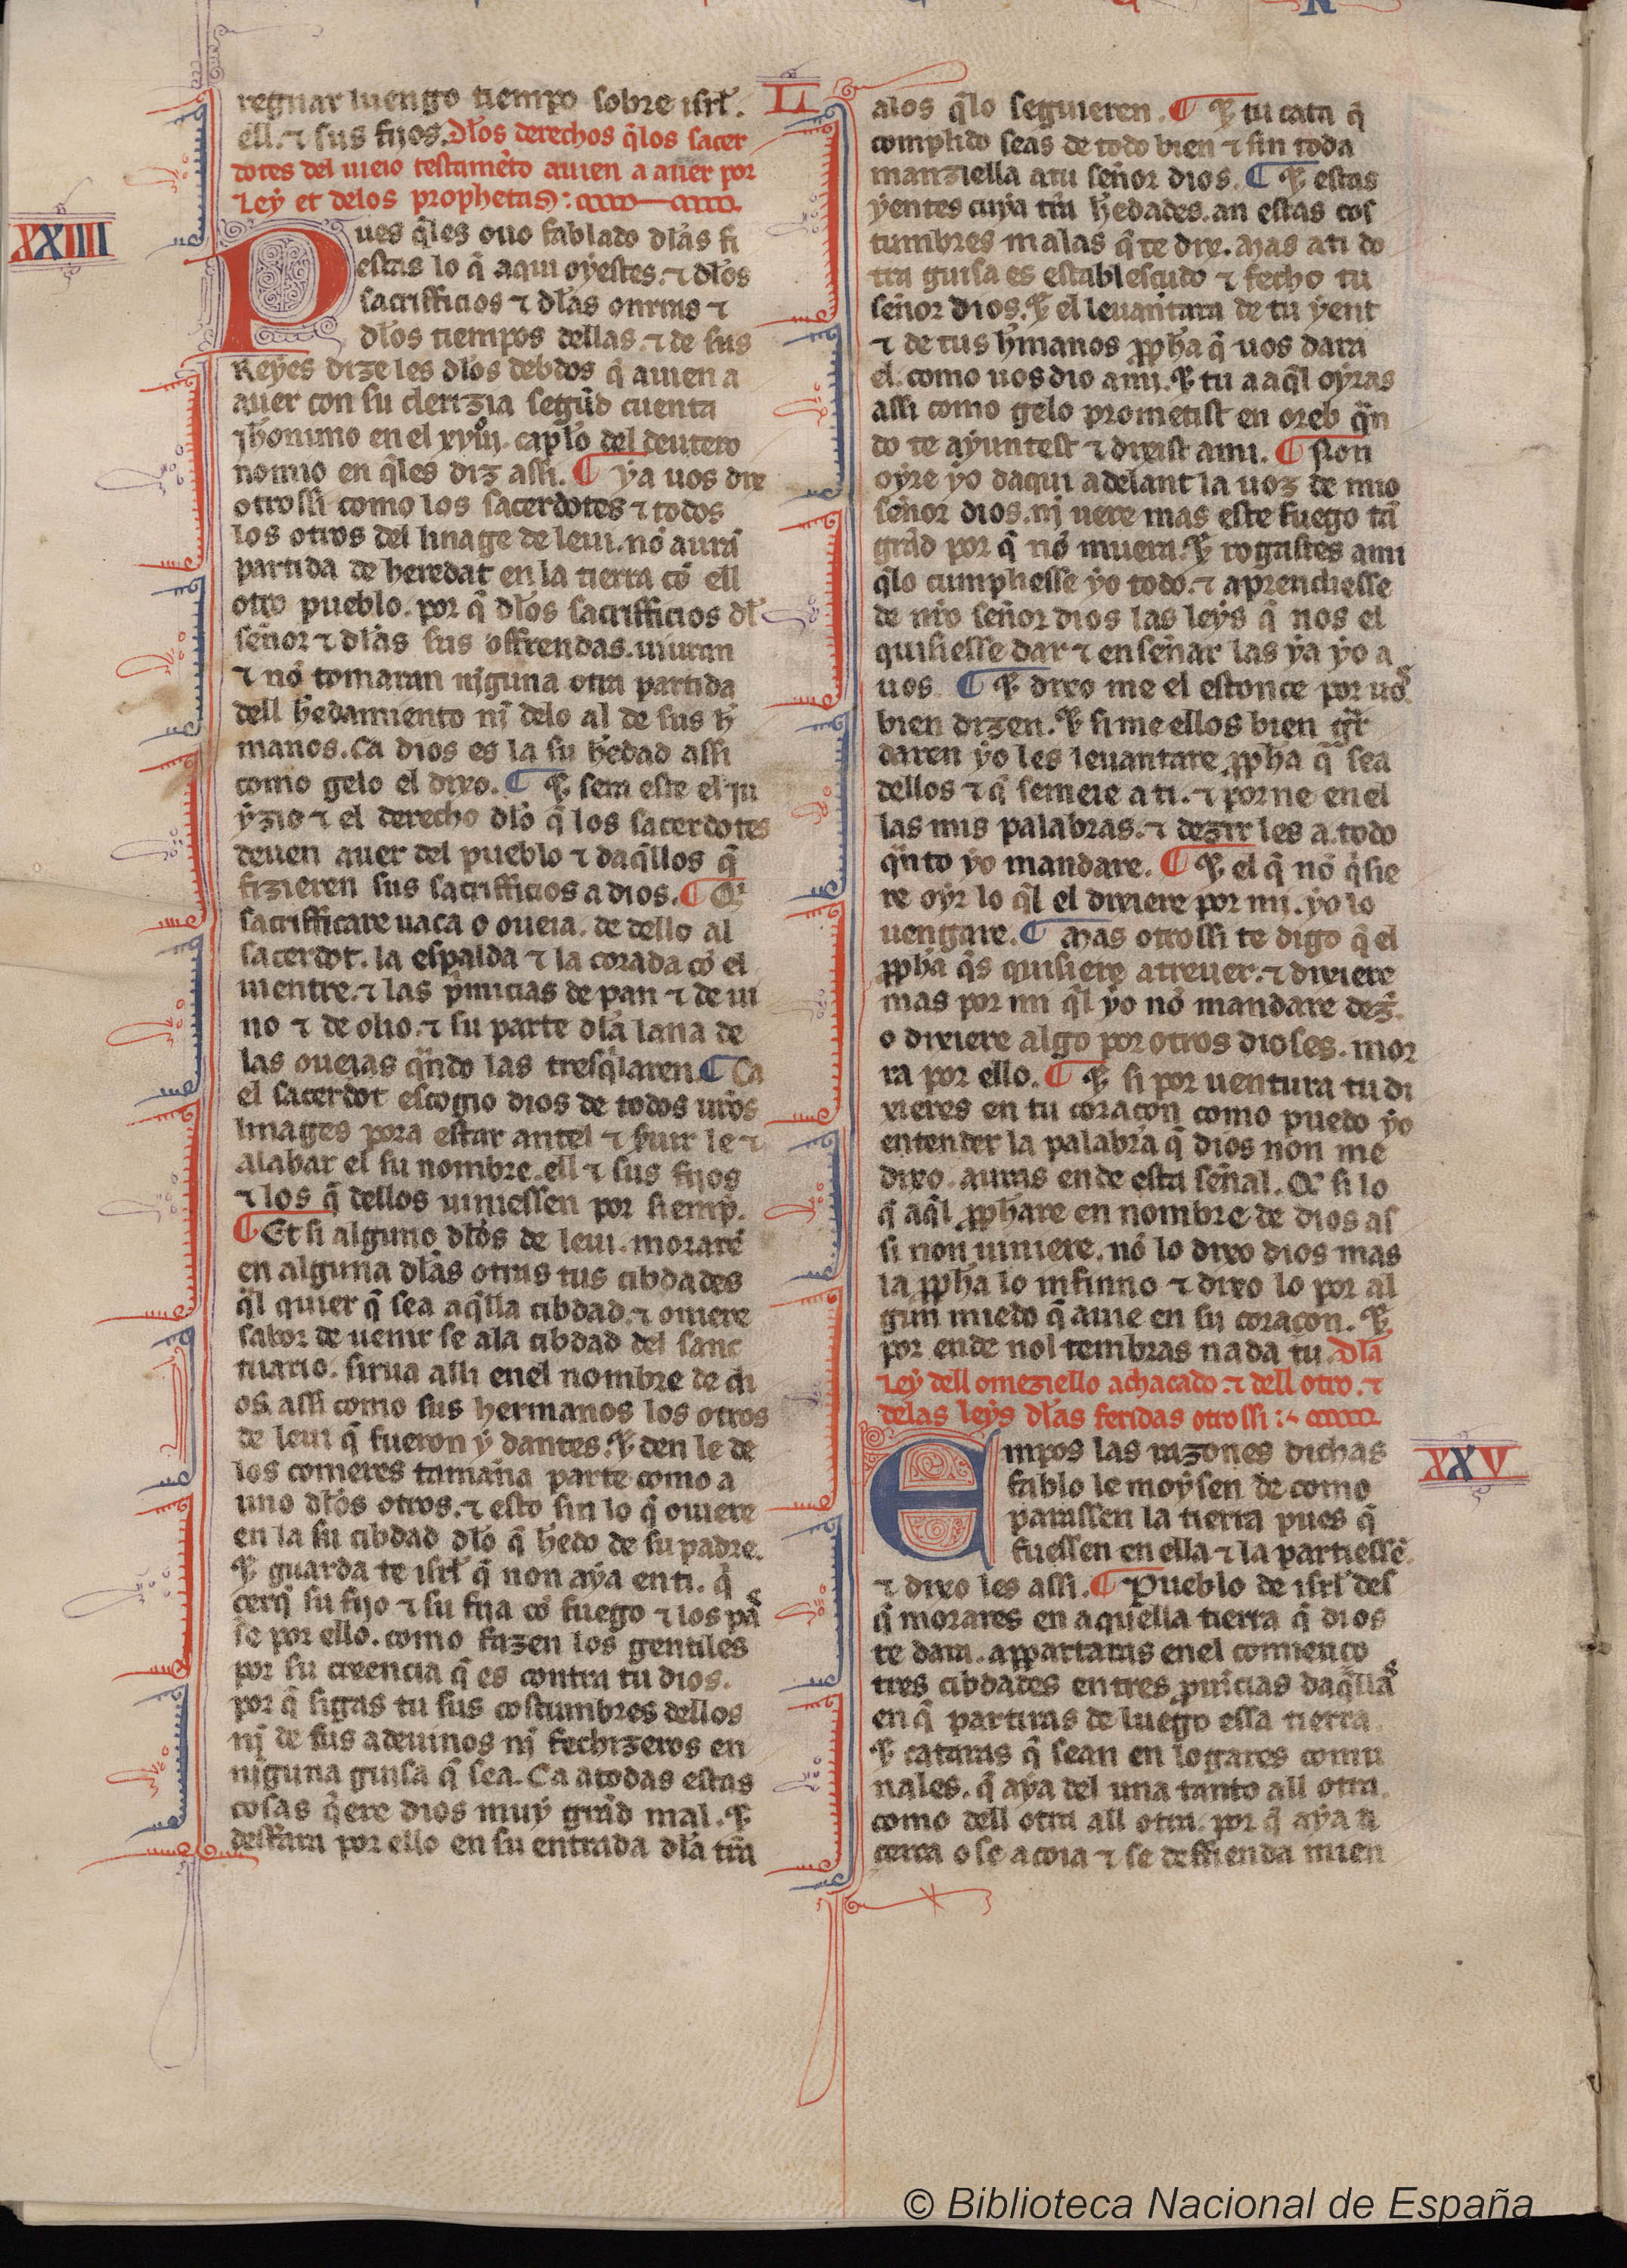 regnar luengo tiempo sobre isrł.
ell. ⁊ sus fijos. Dłos derechos q̃los sacer
dotes del uieio testamẽto auien a auer por
Ley et delos prophetas:
XXIIII
Pues q̃les ouo fablado dłas fi
estas lo q̃ aqui oyestes. ⁊ dłos
sacrifficios ⁊ dłas onrras ⁊
dłos tiempos dellas. ⁊ de sus
Reyes dize les dłos debdos q̃ auien a
auer con su clerizia segũd cuenta
Jhonimo en el xviii. capło del deutero
nomio en q̃les diz assi. ¶ ya uos dixe
otrossi como los sacerdotes ⁊ todos
los otros del linage de leui. nõ aurã
partida de heredat en la tierra cõ ell
otro pueblo. por q̃ dłos sacrifficios dł
señor ⁊ dłas sus offrendas. uiuran
⁊ nõ tomaran njguna otra partida
dell h̃edamiento nj̃ delo al de sus h̃
manos. Ca dios es la su h̃edad assi
como gelo el dixo. ¶ ⁊ sera este el ju
yzio ⁊ el derecho dło q̃ los sacerdotes
deuen auer del pueblo ⁊ daq̃llos q̃
fizieren sus sacrifficios a dios. ¶ Qi
sacrifficare uaca o oueia. de dello al
sacerdot. la espalda ⁊ la corada cõ el
uientre. ⁊ las p̃micias de pan ⁊ de ui
no ⁊ de olio. ⁊ su parte dła lana de
las oueias q̃ndo las tresq̃laren. ¶ Ca
el sacerdot escogio dios de todos ur̃os
linages pora estar antel ⁊ suir le ⁊
alabar el su nombre. ell ⁊ sus fijos
⁊ los q̃ dellos uiniessen por siemp̃.
¶ Et si alguno dłos de leui. morarẽ
en alguna dłas otras tus cibdades
q̃l quier q̃ sea aq̃lla cibdad. ⁊ ouiere
sabor de uenir se ala cibdad del sanc
tuario. sirua alli enel nombre de di
os. assi como sus hermanos los otros
de leui q̃ fueron y dantes. ⁊ den le de
los comeres tamaña parte como a
uno dłos otros. ⁊ esto sin lo q̃ ouiere
en la su cibdad dło q̃ h̃edo de su padre.
⁊ guarda te isrł q̃ non aya enti. q̃
cerq̃ su fijo ⁊ su fija cõ fuego ⁊ los pas
se por ello. como fazen los gentiles
por su creencia q̃ es contra tu dios.
por q̃ sigas tu sus costumbres dellos
nj̃ de sus adeuinos nj̃ fechizeros en
njguna guisa q̃ sea. Ca atodas estas
cosas q̃ere dios muy grãd mal. ⁊
desffara por ello en su entrada dła tr̃ra
L
alos q̃lo seguieren. ¶ ⁊ tu cata q̃
complido seas de todo bien ⁊ sin toda
manziella atu señor dios. ¶ ⁊ estas
yentes cuya tr̃ra h̃edades. an estas cos
tumbres malas q̃ te dixe. Mas ati do
tra guisa es establescudo ⁊ fecho tu
señor dios. ⁊ el leuantara de tu yent
⁊ de tus h̃manos ꝓph̃a q̃ uos dara
el. como uos dio ami. ⁊ tu a aq̃l oyras
assi como gelo prometist en oreb q̃n
do te ayuntest ⁊ dixist ami. ¶ Non
oyre yo daqui adelant la uoz de mio
señor dios. nj uere mas este fuego tã
grãd por q̃ nõ muera. ⁊ rogastes ami
q̃lo cumpliesse yo todo. ⁊ aprendiesse
de nr̃o señor dios las leys q̃ nos el
quisiesse dar ⁊ enseñar las ya yo a
uos. ¶ ⁊ dixo me el estonce por uos.
bien dizen. ⁊ si me ellos bien gr̃
daren yo les leuantare ꝓph̃a q̃ sea
dellos ⁊ q̃ semeie ati. ⁊ porne enel
las mis palabras. ⁊ dezir les a todo
q̃nto yo mandare. ¶ ⁊ el q̃ nõ q̃sie
re oyr lo q̃l el dixiere por mi. yo lo
uengare. ¶ Mas otrossi te digo q̃ el
ꝓph̃a q̃s quisiere atreuer. ⁊ dixiere
mas por mi q̃l yo nõ mandare dez̃.
o dixiere algo por otros dioses. mor
ra por ello. ¶ ⁊ si por uentura tu di
xieres en tu coraçon como puedo yo
entender la palabra q̃ dios non me
dixo. auras ende esta señal. Q̃ si lo
q̃ aq̃l ꝓph̃are en nombre de dios as
si non uiniere. nõ lo dixo dios mas
la ꝓph̃a lo infinno ⁊ dixo lo por al
gun miedo q̃ auie en su coraçon. ⁊
por ende nol tembras nada tu. Dła
Ley dell omeziello achacado. ⁊ dell otro. ⁊
delas leys dłas feridas otrossi:
XXV
Empos las razones dichas
fablo le moysen de como
parassen la tierra pues q̃
fuessen en ella ⁊ la partiessẽ.
⁊ dixo les assi. ¶ Pueblo de isrł des
q̃ morares en aquella tierra q̃ dios
te dara. appartaras enel comienço
tres cibdades entres ꝓuincias daq̃llas
en q̃ partiras de luego essa tierra.
⁊ cataras q̃ sean en logares comu
nales. q̃ aya del una tanto all otra.
como dell otra all otra. por q̃ aya a
cerca o se acoia ⁊ se deffienda mien
© Biblioteca Nacional de España